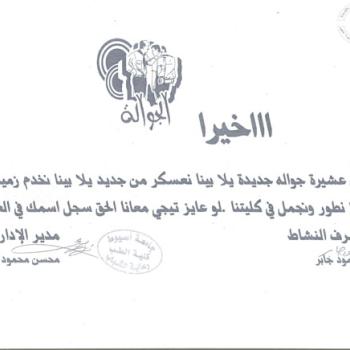 الجوالة
اااخيرا
عشيرة جواله جديدة يلا بينا نعسكر من جديد يلا بينا نخدم زمي
نطور ونجمل في كليتنا .لو عايز تيجي معانا الحق سجل اسمك في الع
رف النشاط
مدير الإدار
مود جابر
محسن محمود
جامعة اسيوط
كلية الطب
رعاية الشباب